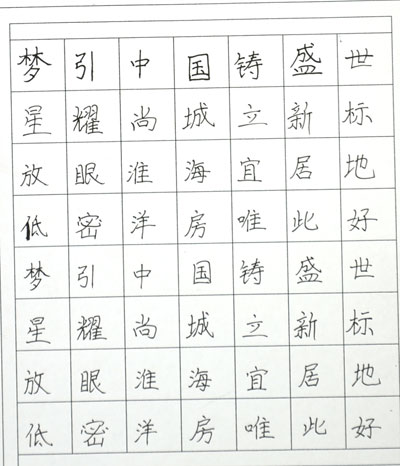 梦引中国铸盛世
星耀尚城立新标
放眼淮海宜居地
低密洋房唯此好
梦引中国铸盛世
星耀尚城立新标
放眼淮海宜居地
低密洋房唯此好